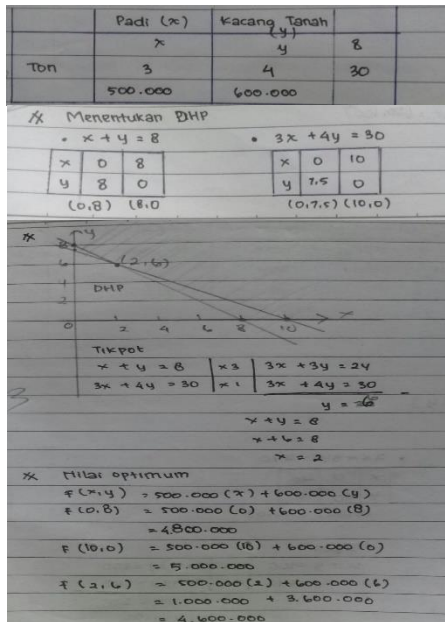 Padi (x) Kacang Tanah (y)
x y 8
Ton 3 4 30
500.000 600.000
* Menentukan DHP
• x + y = 8 • 3x + 4y = 30
x 0 8 x 0 10
y 8 0 y 7,5 0
(0,8) (8,0 (0,7,5) (10,0)
* y
8
6 (2,6)
4
DHP
2
0 2 4 6 8 10 x
Tikpot
x + y = 8 | x3 | 3x + 3y = 24
3x + 4y = 30 | x1 | 3x + 4y = 30
3 y = 6
x + y = 8
x + 6 = 8
x = 2
* Nilai optimum
f (x,y) = 500.000 (x) + 600.000 (y)
f (0,8) = 500.000 (0) + 600.000 (8)
= 4.800.000
f (10,0) = 500.000 (10) + 600.000 (0)
= 5.000.000
f (2,6) = 500.000 (2) + 600.000 (6)
= 1.000.000 + 3.600.000
= 4.600.000